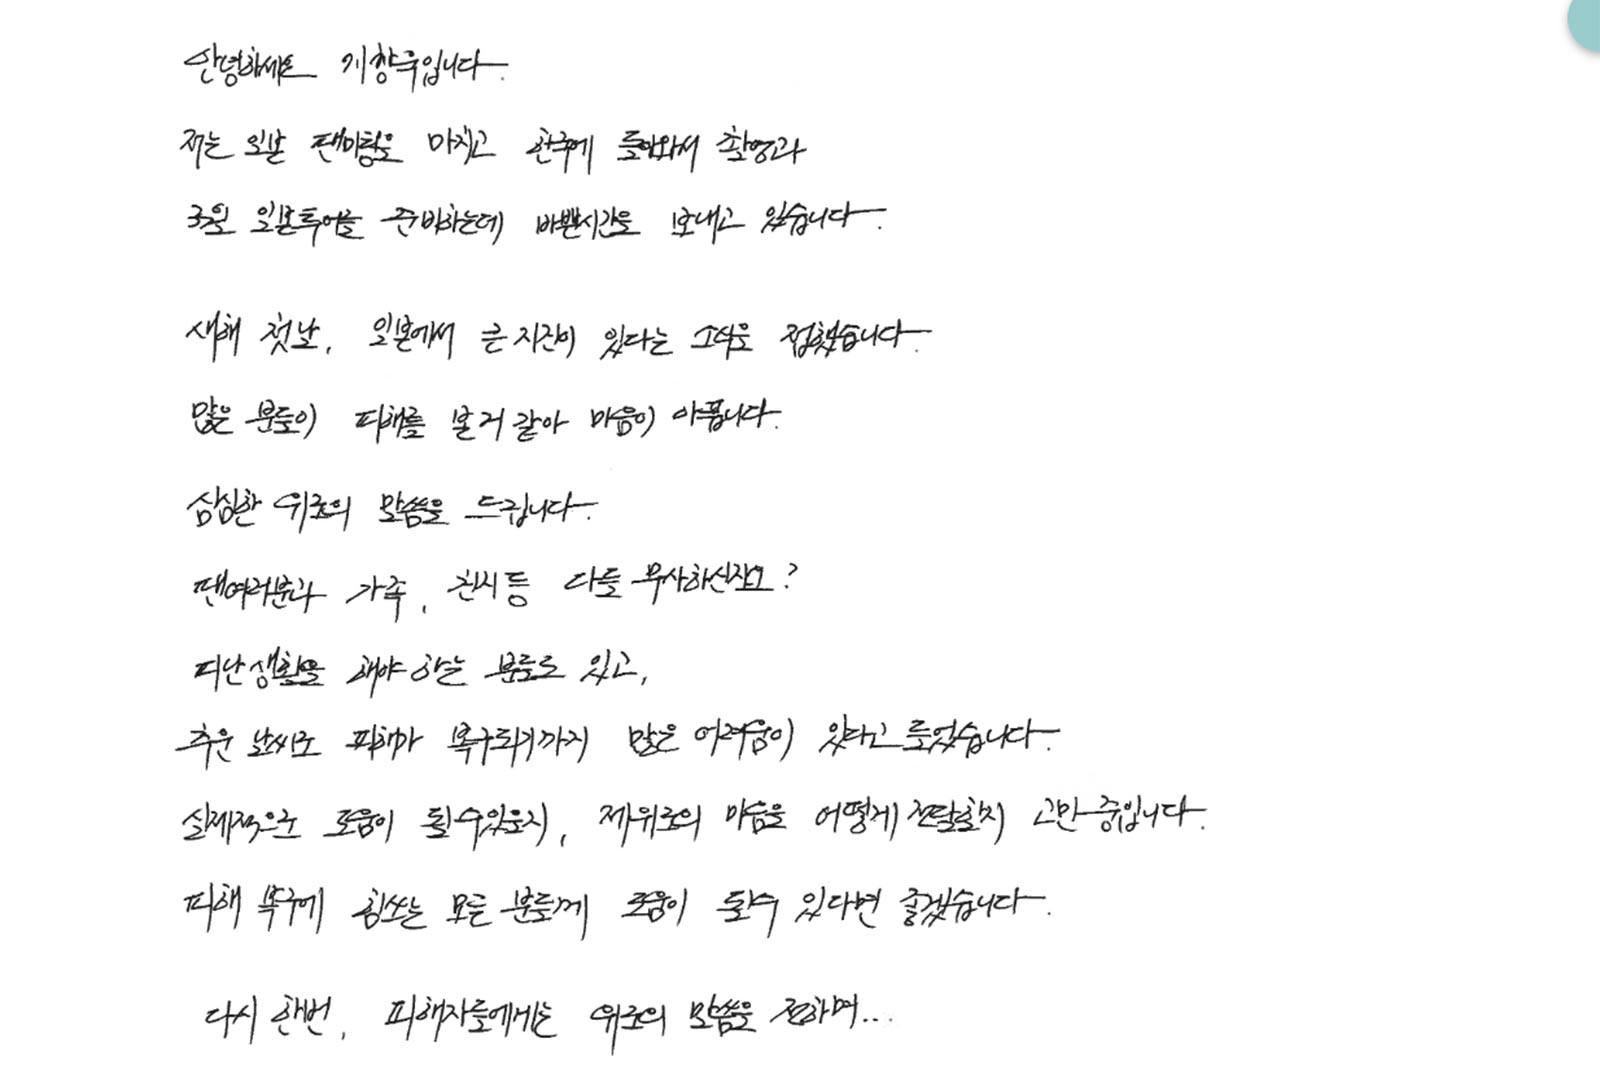 안녕하세요 지창욱입니다.
저는 일본 팬미팅을 마치고 한국에 돌아와서 촬영과
3월 일본투어를 준비하는데 바쁜시간을 보내고 있습니다.
새해 첫날, 일본에서 큰 지진이 있다는 소식을 접했습니다.
많은 분들이 피해를 본거 같아 마음이 아픕니다.
심심한 위로의 말씀을 드립니다.
팬여러분과 가족, 친지등 다들 무사하신지요?
피난생활을 해야 하는 분들도 있고,
추운 날씨로 피해가 복구되기까지 많은 어려움이 있다고 들었습니다.
실제적으로 도움이 될 수있을지, 제 위로의 마음을 어떻게 전달할지 고민 중입니다.
피해 복구에 힘쓰는 모든 분들께 도움이 될수 있다면 좋겠습니다.
다시 한번, 피해자들에게는 위로의 말씀을 전하며...